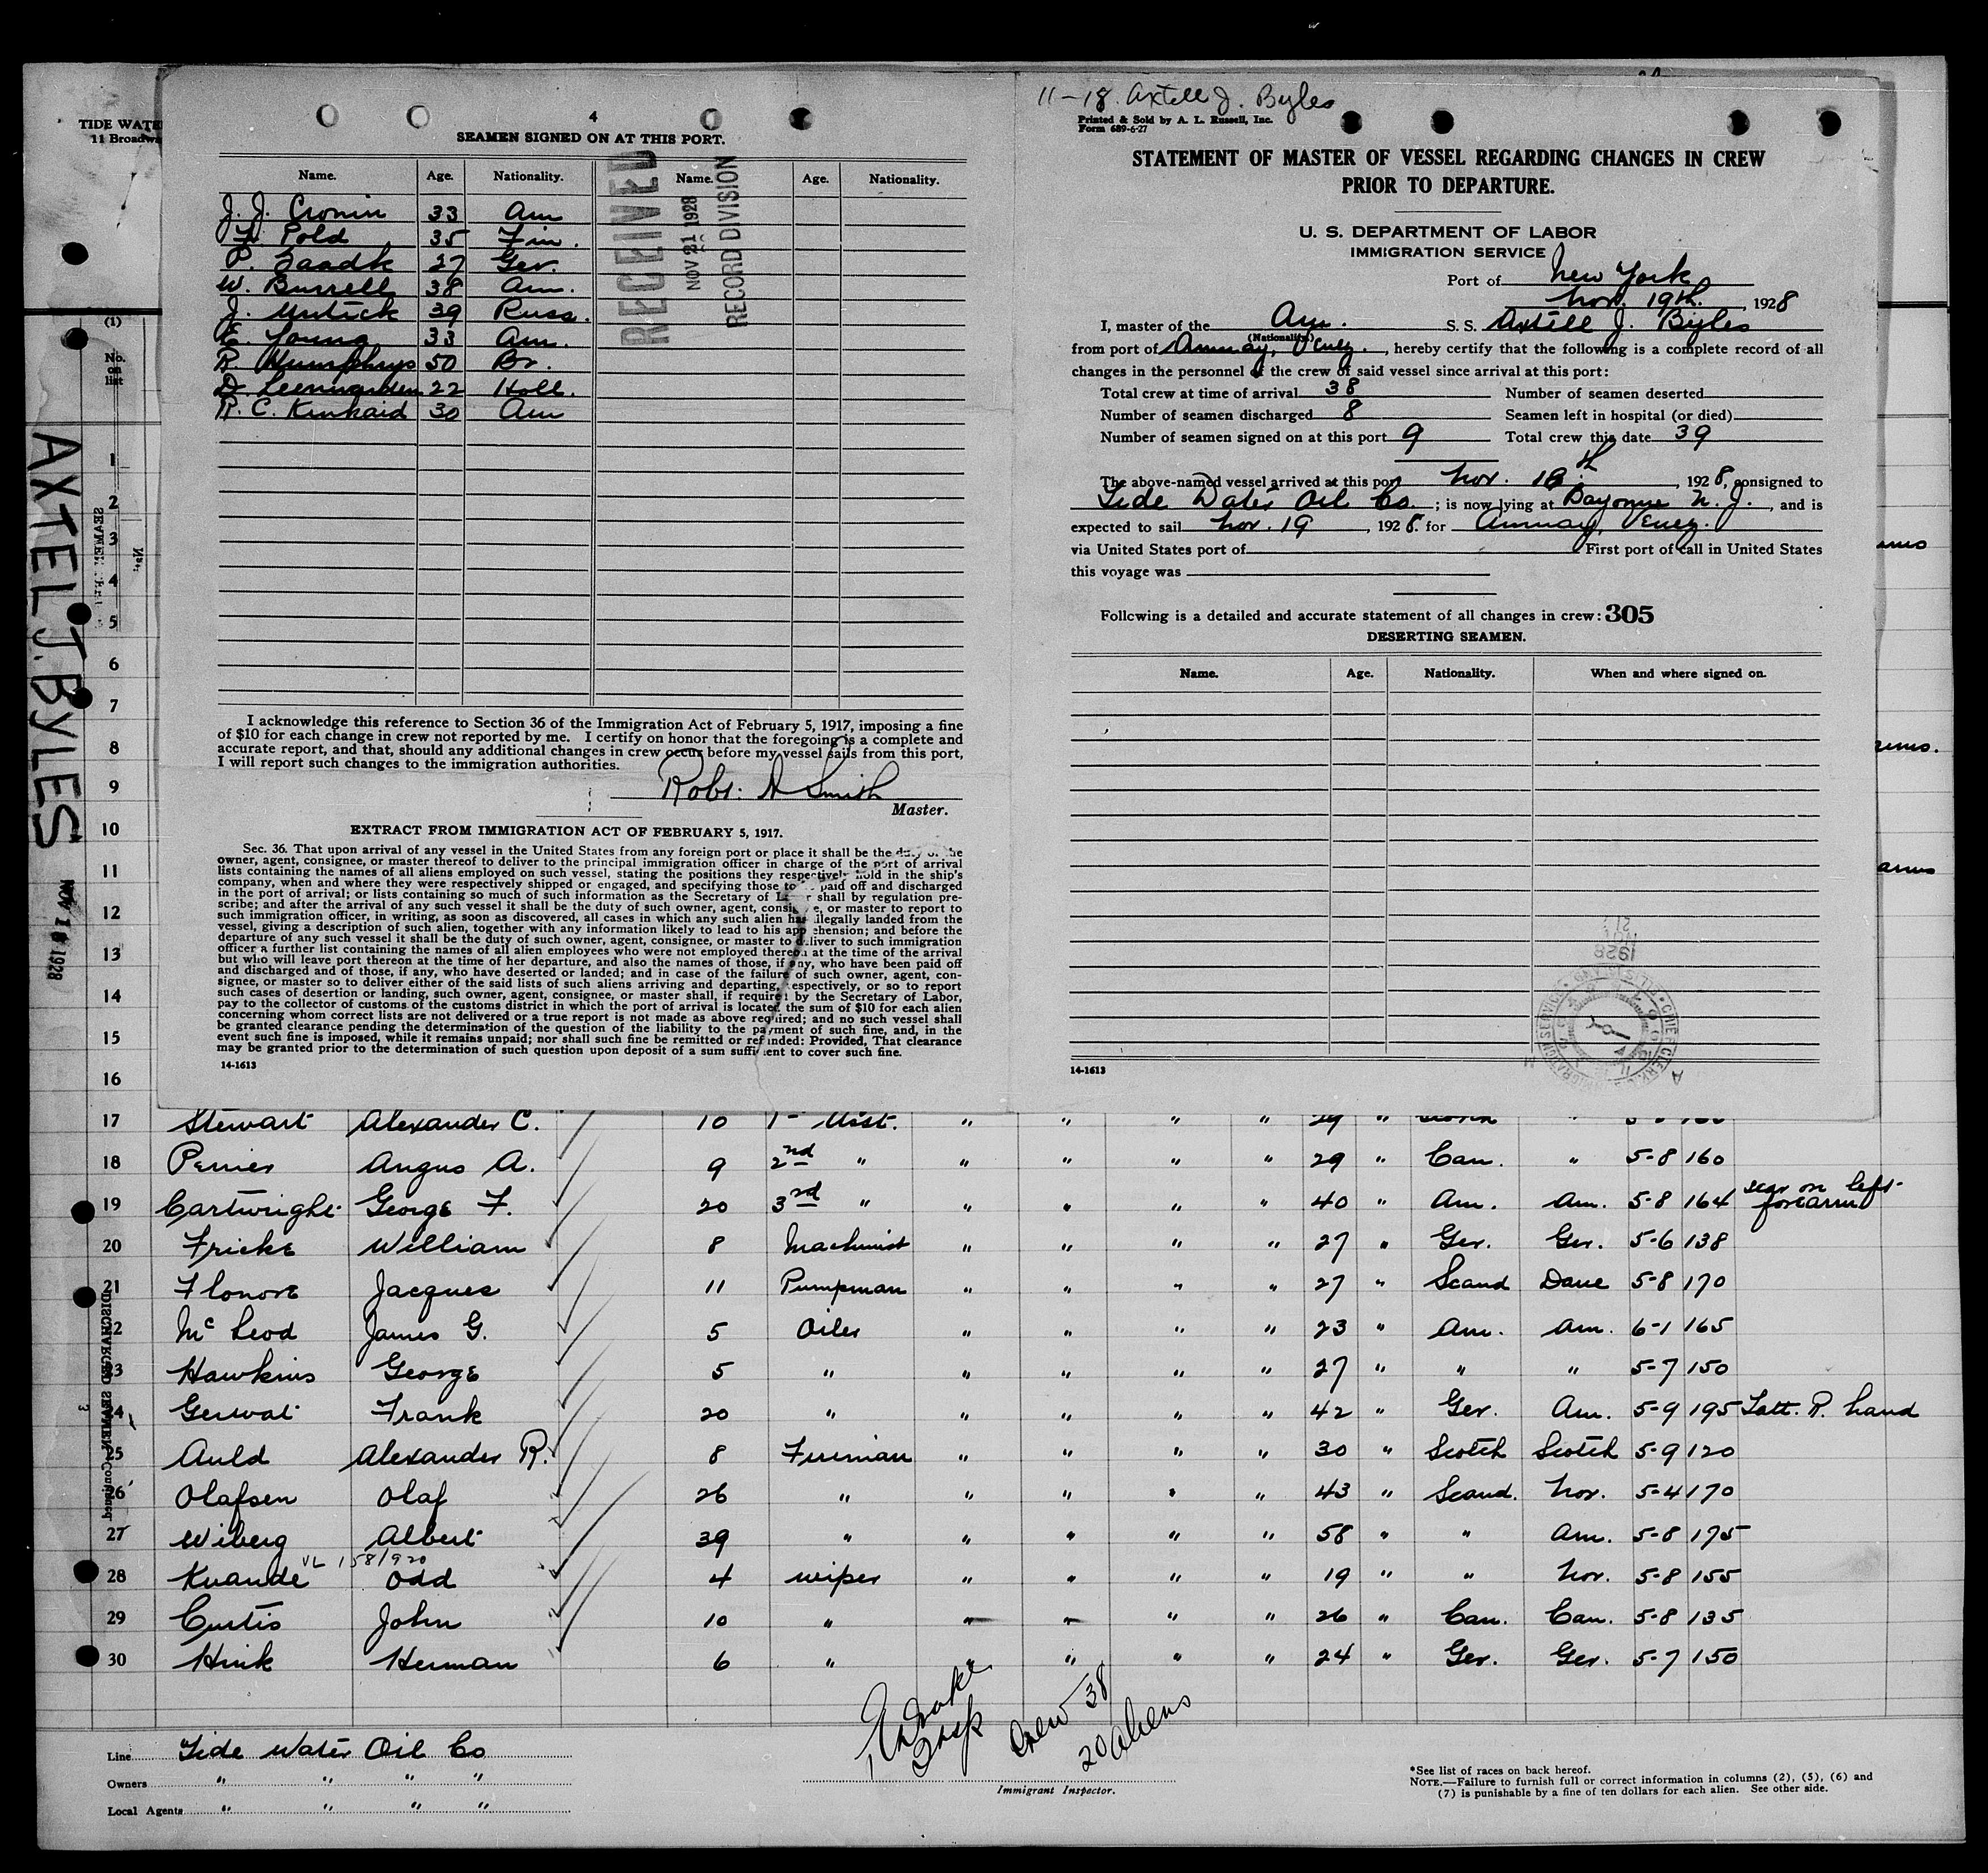 TIDE WATE
11 Broadwa
4
SEAMEN SIGNED ON AT THIS PORT.
Name. Age. Nationality. Name. Age. Nationality.
J. J. Cronin 33 Am
Pold 35 Fin.
P. 27 Ger.
W. Burrell 38 Am.
J. 39 Russ.
E. Young 33 Am.
R. Humphrys 50 Br.
D. Leenwarden 22 Holl.
R. C. Kinkaid 30 Am
RECEIVED
NOV 21 1928
RECORD DIVISION
I acknowledge this reference to Section 36 of the Immigration Act of February 5, 1917, imposing a fine
of $10 for each change in crew not reported by me. I certify on honor that the foregoing is a complete and
accurate report, and that, should any additional changes in crew occur before my vessel sails from this port,
I will report such changes to the immigration authorities.
Robt. A Smith
Master.
EXTRACT FROM IMMIGRATION ACT OF FEBRUARY 5, 1917.
Sec. 36. That upon arrival of any vessel in the United States from any foreign port or place it shall be the duty of the
owner, agent, consignee, or master thereof to deliver to the principal immigration officer in charge of the port of arrival
lists containing the names of all aliens employed on such vessel, stating the positions they respectively hold in the ship's
company, when and where they were respectively shipped or engaged, and specifying those to paid off and discharged
in the port of arrival; or lists containing so much of such information as the Secretary of L r shall by regulation pre-
scribe; and after the arrival of any such vessel it shall be the duty of such owner, agent, consig e, or master to report to
such immigration officer, in writing, as soon as discovered, all cases in which any such alien has illegally landed from the
vessel, giving a description of such alien, together with any information likely to lead to his app ehension; and before the
departure of any such vessel it shall be the duty of such owner, agent, consignee, or master to deliver to such immigration
officer a further list containing the names of all alien employees who were not employed thereon at the time of the arrival
but who will leave port thereon at the time of her departure, and also the names of those, if any, who have been paid off
and discharged and of those, if any, who have deserted or landed; and in case of the failure of such owner, agent, con-
signee, or master so to deliver either of the said lists of such aliens arriving and departing, respectively, or so to report
such cases of desertion or landing, such owner, agent, consignee, or master shall, if required by the Secretary of Labor,
pay to the collector of customs of the customs district in which the port of arrival is located the sum of $10 for each alien
concerning whom correct lists are not delivered or a true report is not made as above required; and no such vessel shall
be granted clearance pending the determination of the question of the liability to the payment of such fine, and, in the
event such fine is imposed, while it remains unpaid; nor shall such fine be remitted or refunded: Provided, That clearance
may be granted prior to the determination of such question upon deposit of a sum sufficient to cover such fine.
14-1613
11-18. Axtell J. Byles
Printed & Sold by A. L. Russell, Inc.
Form 689-6-27
STATEMENT OF MASTER OF VESSEL REGARDING CHANGES IN CREW
PRIOR TO DEPARTURE.
U. S. DEPARTMENT OF LABOR
IMMIGRATION SERVICE
Port of New York
Nov. 19th. , 1928
I, master of the Am. S. S. Axtell J. Byles
(Nationality.)
from port of Amuay, Venez. , hereby certify that the following is a complete record of all
changes in the personnel of the crew of said vessel since arrival at this port:
Total crew at time of arrival 38 Number of seamen deserted
Number of seamen discharged 8 Seamen left in hospital (or died)
Number of seamen signed on at this port 9 Total crew this date 39
The above-named vessel arrived at this port Nov. 18th , 1928, consigned to
Tide Water Oil Co. ; is now lying at Bayonne N. J. , and is
expected to sail Nov. 19 , 1928 for Amuay, Venez.
via United States port of First port of call in United States
this voyage was
Following is a detailed and accurate statement of all changes in crew: 305
DESERTING SEAMEN.
Name. Age. Nationality. When and where signed on.
14-1613
AXTEL J. BYLES
NOV 18 1928
(1)
No.
on
list
1
2
3
4
5
6
7
8
9
10
11
12
13
14
15
16
17 Stewart Alexander C. 10 1 Asst. " " " " 29 "
18 Perrier Angus A. 9 2nd " " " " " 29 " Can. " 5-8 160
19 Cartwright George F. 20 3rd " " " " " 40 " Am. Am. 5-8 164 scar on left forearm
20 Fricke William 8 Machinist " " " " 27 " Ger. Ger. 5-6 138
21 Flonore Jacques 11 Pumpman " " " " 27 " Scand Dane 5-8 170
22 McLeod James G. 5 Oiler " " " " 23 " Am. Am. 6-1 165
23 Hawkins George 5 " " " " " 27 " " " 5-7 150
24 Gerwat Frank 20 " " " " " 42 " Ger. Am. 5-9 195 Tatt. R. hand
25 Auld Alexander R. 8 Fireman " " " " 30 " Scotch Scotch 5-9 120
26 Olafsen Olaf 26 " " " " " 43 " Scand. Nor. 5-4 170
27 Wiberg Albert 39 " " " " " 58 " " Am. 5-8 175
VL 158/920
28 Kvande Odd 4 wiper " " " " 19 " " Nor. 5-8 155
29 Curtis John 10 " " " " " 26 " Can. Can. 5-8 135
30 Hink Herman 6 " " " " " 24 " Ger. Ger. 5-7 150
Crew 38
20 aliens
Line Tide Water Oil Co
Owners " " " "
Local Agents " " " "
Immigrant Inspector.
*See list of races on back hereof.
NOTE.—Failure to furnish full or correct information in columns (2), (5), (6) and
(7) is punishable by a fine of ten dollars for each alien. See other side.